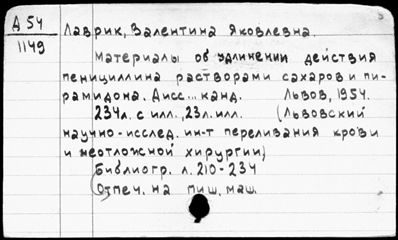 Д 54
1149
Лаврик, Валентина Яковлевна.
Материалы об удлинении действия
пенициллина растворами сахаров и пи-
рамидона. Дисс... канд. Львов, 1954.
234л. с илл., 23л. илл. (Львовский
научно-исслед. ин-т переливания крови
и неотложной хирургии)
Библиогр. л. 210-234
Отпеч. на пиш. маш.